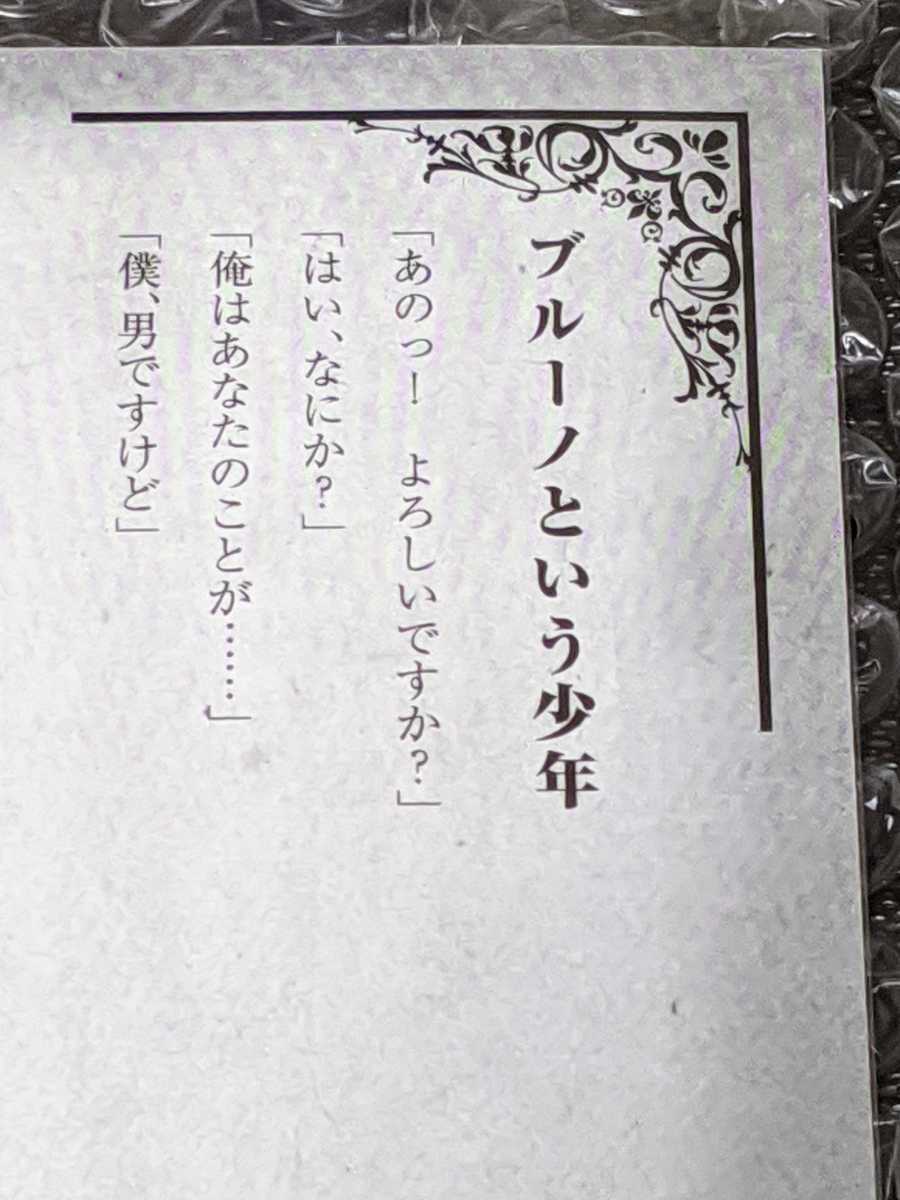 ブルーノという少年
「あのっ！　よろしいですか？」
「はい、なにか？」
「俺はあなたのことが……」
「僕、男ですけど」